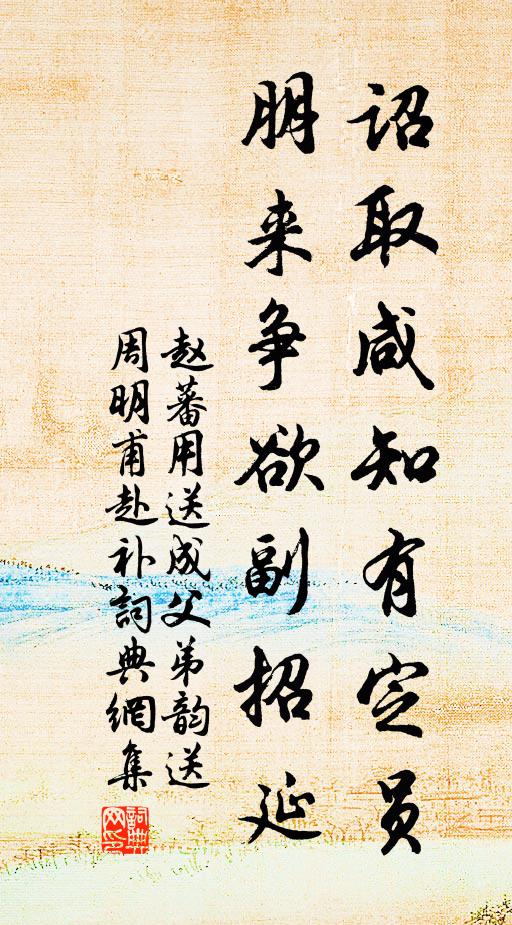 诏取咸知有定员
朋来争欲副招延
赵蕃用送成父弟韵送
周明甫赴补詞典網集
詞典
网印